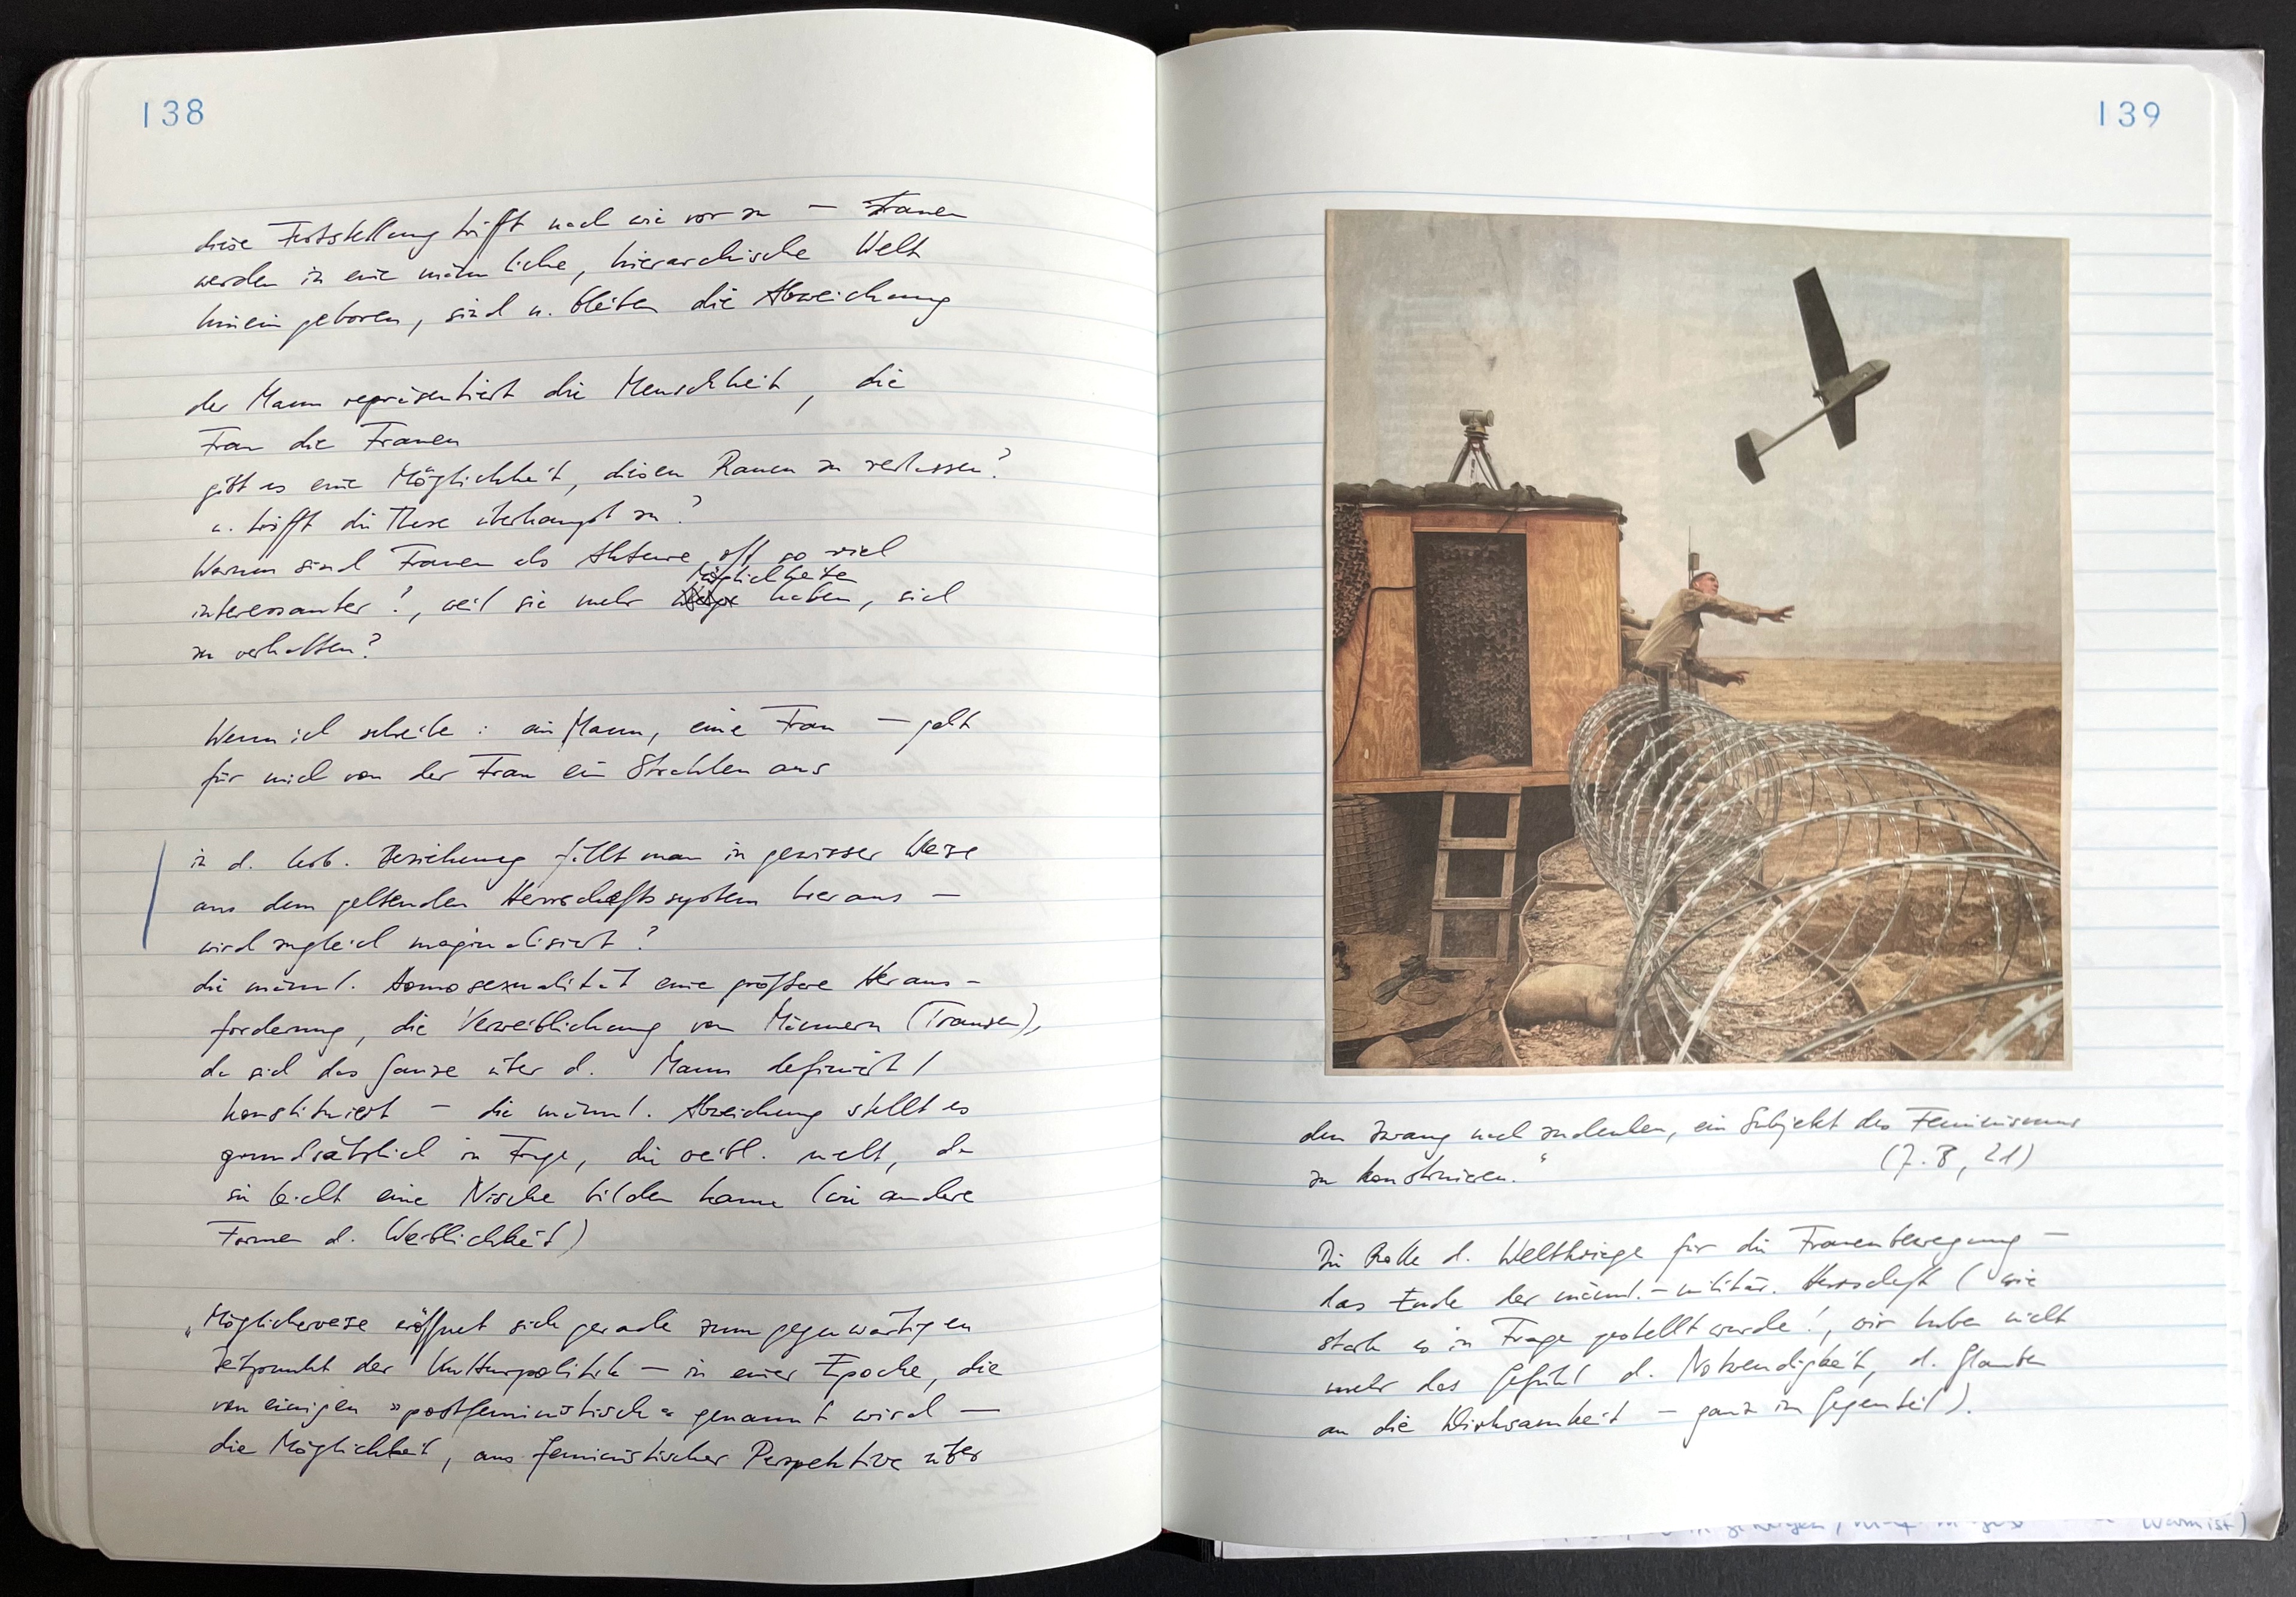 138
diese Feststellung trifft nach wie vor zu – Frauen
werden in eine männliche, hierarchische Welt
hinein geboren, sind u. bleiben die Abweichung
der Mann repräsentiert die Menschheit, die
Frau die Frauen
gibt es eine Möglichkeit, diesen Raum zu verlassen?
u. trifft die These überhaupt zu?
Warum sind Frauen als Akteure oft so viel
Möglichkeiten
interessanter?, weil sie mehr haben, sich
zu verhalten?
Wenn ich schreibe: ein Mann, eine Frau – geht
für mich von der Frau ein Strahlen aus
in d. lesb. Beziehung fällt man in gewisser Weise
aus dem geltenden Herrschaftssystem heraus –
wird zugleich marginalisiert?
die männl. Homosexualität eine größere Heraus-
forderung, die Verweiblichung von Männern (Transen),
da sich das Ganze über d. Mann definiert /
konstituiert – die männl. Abweichung stellt es
grundsätzlich in Frage, die weibl. nicht, da
sie leicht eine Nische bilden kann (wie andere
Formen d. Weiblichkeit)
„Möglicherweise eröffnet sich gerade zum gegenwärtigen
Zeitpunkt der Kulturpolitik – in einer Epoche, die
von einigen »postfeministisch« genannt wird –
die Möglichkeit, aus feministischer Perspektive über
139
den Zwang nachzudenken, ein Subjekt des Feminismus
zu konstruieren.“ (J. B, 21)
Die Rolle d. Weltkriege für die Frauenbewegung –
das Ende der männl.-militär. Herrschaft (wie
stark es in Frage gestellt wurde!, wir haben nicht
mehr das Gefühl d. Notwendigkeit, d. Glauben
an die Wirksamkeit – ganz im Gegenteil).
warm ist)